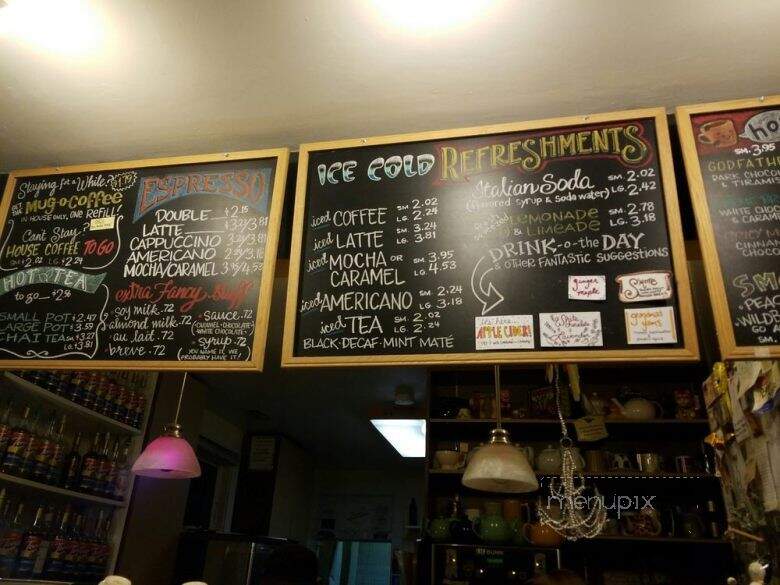 Staying for a While? $1.79
Get the
MUG-o-COFFEE
IN HOUSE ONLY, ONE REFILL
Can't Stay
HOUSE COFFEE TO GO
SM $2.02 LG $2.24
HOT TEA
to go $2.56
SMALL POT $2.47
LARGE POT $3.59
CHAI TEA SM $3.27
LG $3.81
ESPRESSO
DOUBLE $2.15
LATTE 3.24/3.81
CAPPUCCINO 3.24/3.81
AMERICANO 2.24/3.18
MOCHA/CARAMEL 3.95/4.53
extra Fancy Stuff
soy milk .72
almond milk .72
au lait .72
breve .72
sauce .72
CARAMEL CHOCOLATE
WHITE CHOCOLATE
syrup .72
YOU NAME IT, WE
PROBABLY HAVE IT!
ICE COLD REFRESHMENTS
iced COFFEE SM 2.02
LG 2.24
iced LATTE SM 3.24
LG 3.81
iced MOCHA OR CARAMEL SM 3.95
LG 4.53
iced AMERICANO SM 2.24
LG 3.18
iced TEA SM 2.02
LG 2.24
BLACK·DECAF·MINT MATÉ
Italian Soda SM 2.02
(flavored syrup & soda water) LG 2.42
LEMONADE SM 2.78
& LIMEADE LG 3.18
DRINK-o-the DAY
& OTHER FANTASTIC SUGGESTIONS
ginger
maple
it's here...
APPLE CIDER!
White
Chocolate
Lavender
ho
SM. 3.95
GODFATH
DARK CHOCOL
& TIRAM
WHITE CHO
& CARA
CINNA
CHOCO
SM
PEA
WILDB
SM.
menupix